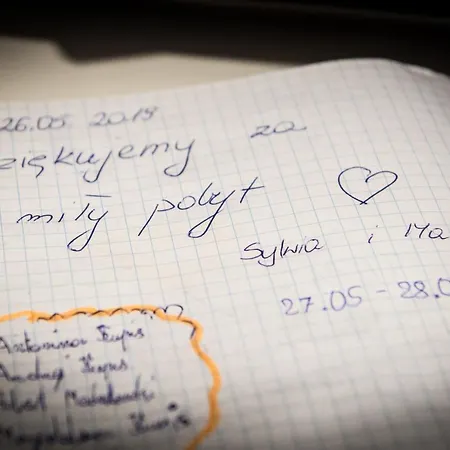 26.05 2019
ziękujemy za
miły pobyt ♡
Sylwia i Ma
27.05 - 28.0
Antonina
Andrzej